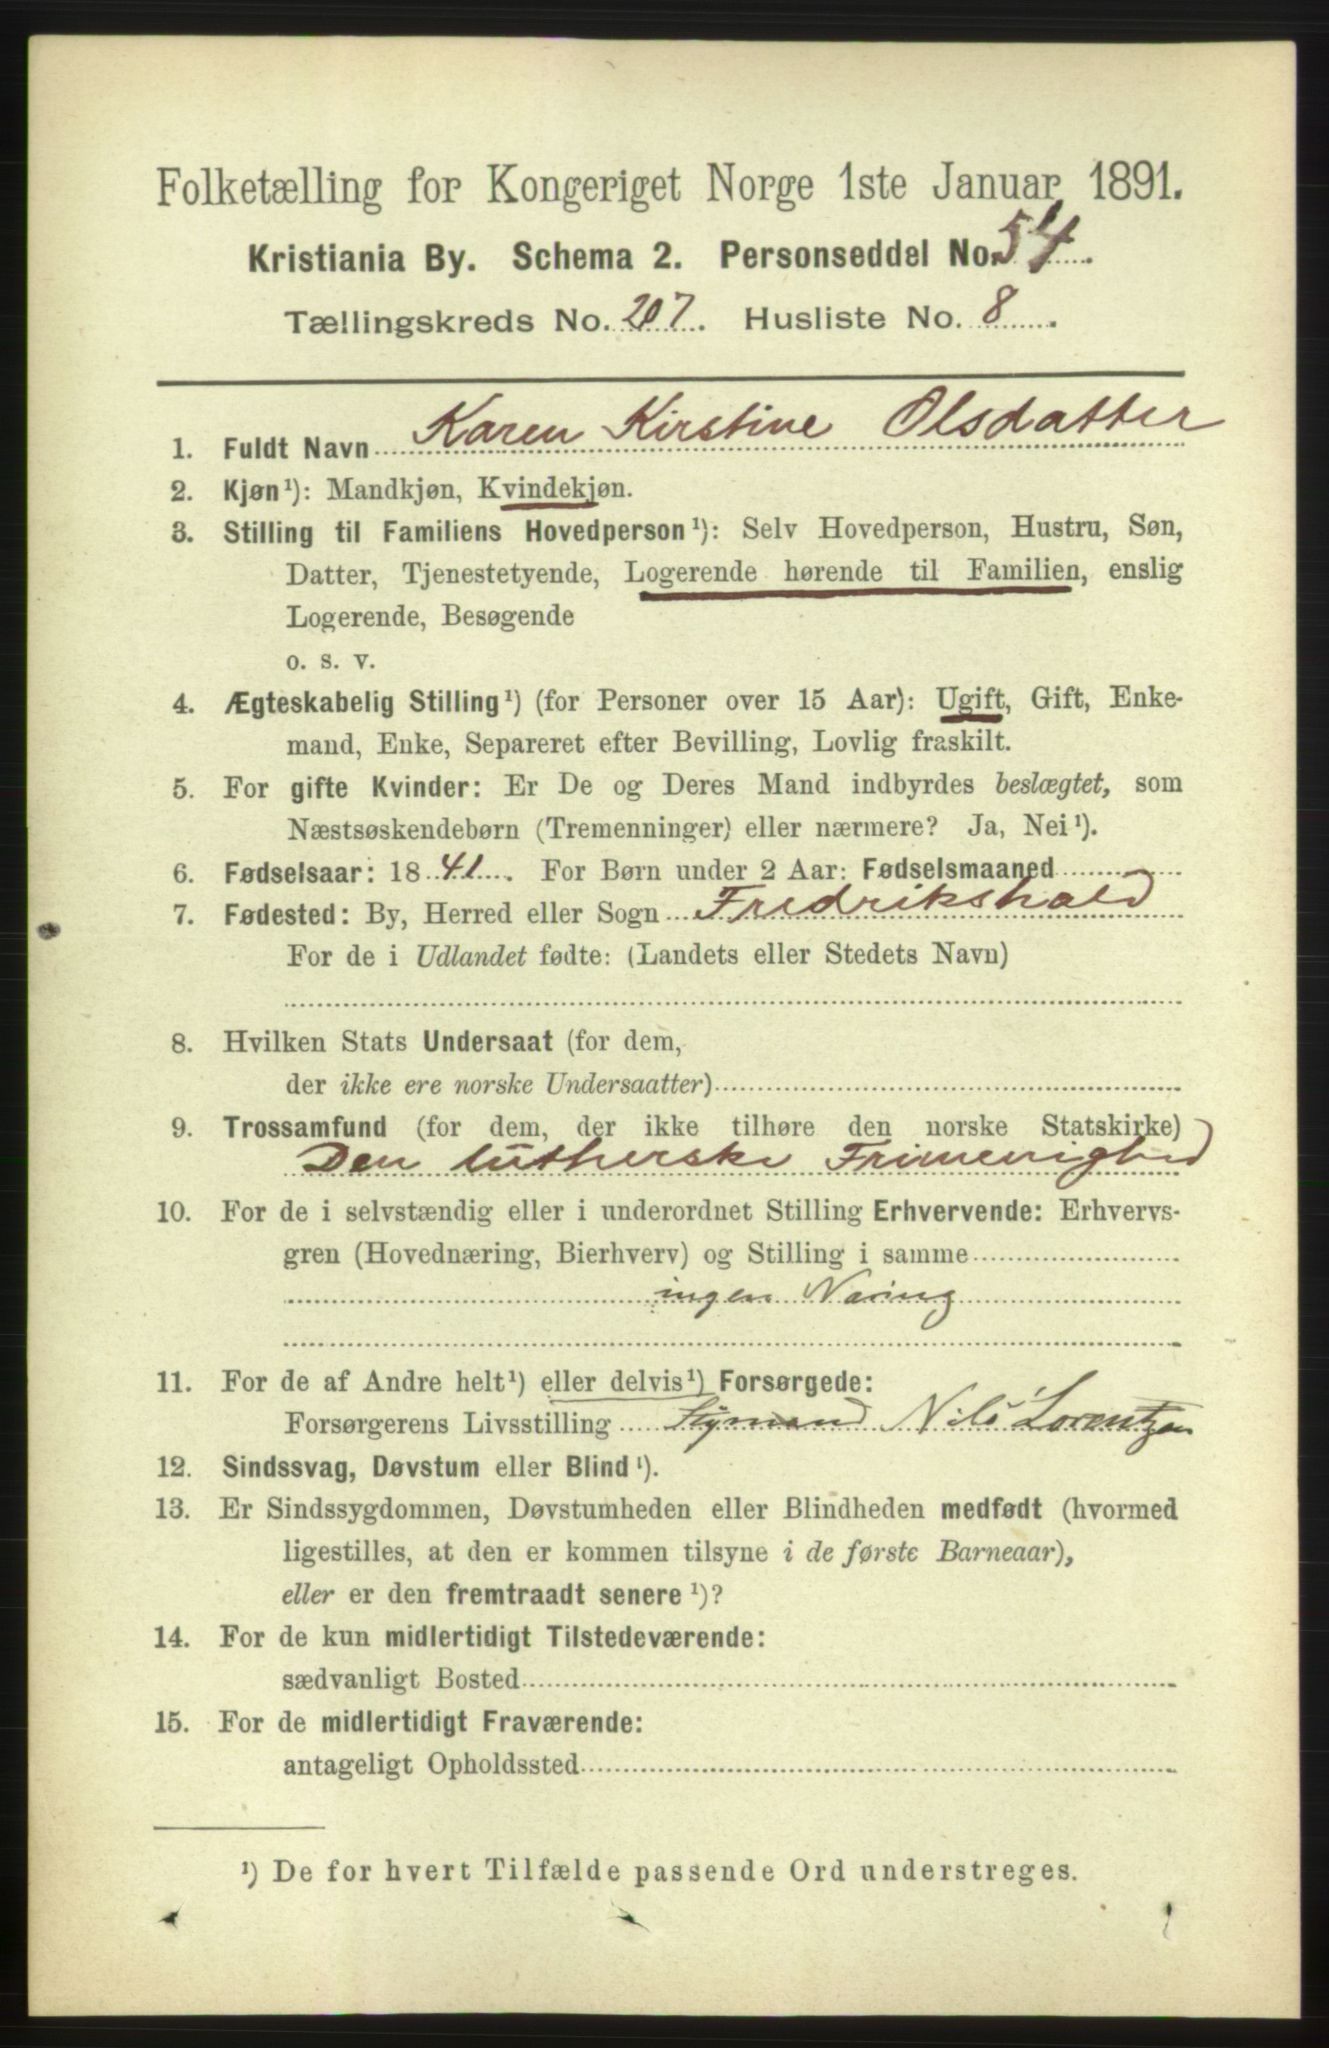 Folketælling for Kongeriget Norge 1ste Januar 1891.
Kristiania By. Schema 2. Personseddel No. 54.
Tællingskreds No. 207. Husliste No. 8.
1. Fuldt Navn Karen Kirstine Olsdatter
2. Kjøn¹): Mandkjøn, Kvindekjøn.
3. Stilling til Familiens Hovedperson¹): Selv Hovedperson, Hustru, Søn,
Datter, Tjenestetyende, Logerende hørende til Familien, enslig
Logerende, Besøgende
o. s. v.
4. Ægteskabelig Stilling¹) (for Personer over 15 Aar): Ugift, Gift, Enke-
mand, Enke, Separeret efter Bevilling, Lovlig fraskilt.
5. For gifte Kvinder: Er De og Deres Mand indbyrdes beslægtet, som
Næstsøskendebørn (Tremenninger) eller nærmere? Ja, Nei¹).
6. Fødselsaar: 1841. For Børn under 2 Aar: Fødselsmaaned
7. Fødested: By, Herred eller Sogn Fredrikshald
For de i Udlandet fødte: (Landets eller Stedets Navn)
8. Hvilken Stats Undersaat (for dem,
der ikke ere norske Undersaatter)
9. Trossamfund (for dem, der ikke tilhøre den norske Statskirke)
Den lutherske Frimenighed
10. For de i selvstændig eller i underordnet Stilling Erhvervende: Erhvervs-
gren (Hovednæring, Bierhverv) og Stilling i samme
ingen Næring
11. For de af Andre helt¹) eller delvis¹) Forsørgede:
Forsørgerens Livsstilling Nils Lorentzen
12. Sindssvag, Døvstum eller Blind¹).
13. Er Sindssygdommen, Døvstumheden eller Blindheden medfødt (hvormed
ligestilles, at den er kommen tilsyne i de første Barneaar),
eller er den fremtraadt senere¹)?
14. For de kun midlertidigt Tilstedeværende:
sædvanligt Bosted
15. For de midlertidigt Fraværende:
antageligt Opholdssted
¹) De for hvert Tilfælde passende Ord understreges.